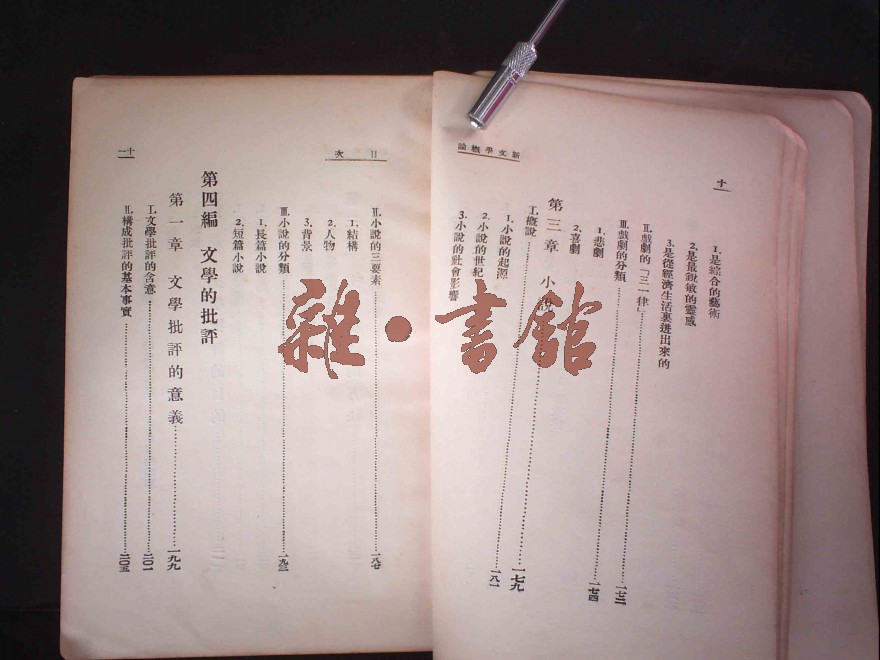 新文學概論
十
1. 是綜合的藝術
2. 是最銳敏的靈感
3. 是從經濟生活裏迸出來的
II. 戲劇的「三一律」
III. 戲劇的分類……一七二
1. 悲劇……一七四
2. 喜劇
第三章 小說
I. 概說……一七九
1. 小說的起源……一八一
2. 小說的世紀
3. 小說的社會影響
目次
十一
II. 小說的三要素……一八七
1. 結構
2. 人物
3. 背景
III. 小說的分類……一九三
1. 長篇小說
2. 短篇小說
第四編 文學的批評
第一章 文學批評的意義……一九九
I. 文學批評的含意……二〇一
II. 構成批評的基本事實……二〇五
雜•書館